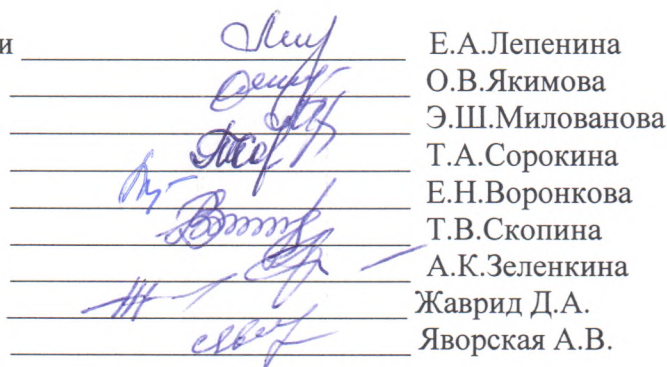 и Е.А.Лепенина
О.В.Якимова
Э.Ш.Милованова
Т.А.Сорокина
Е.Н.Воронкова
Т.В.Скопина
А.К.Зеленкина
Жаврид Д.А.
Яворская А.В.